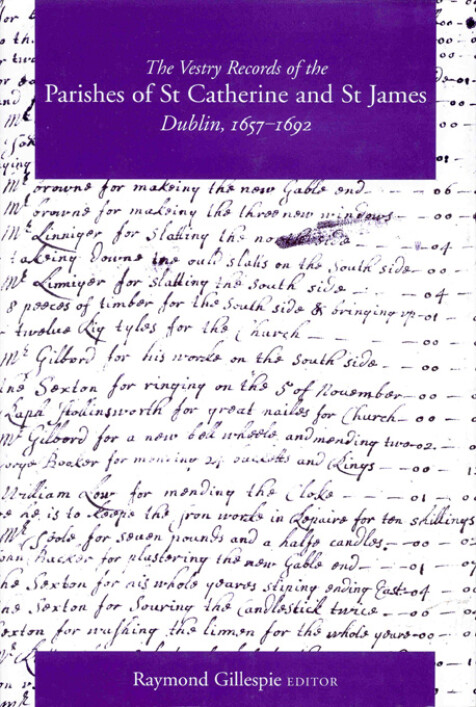 The Vestry Records of the
Parishes of St Catherine and St James
Dublin, 1657–1692
Mr browne for makeing the new Gable end - 06
Mr browne for makeing the three new windows - 00
Mr Linniger for Slatting the north side - 04
takeing downe the ould slatts on the South side - 00
Mr Linniger for slatting the South side - 04
8 peeces of timber for the South side & bringing up - 01
twelve Rig tyles for the Church - 00
Mr Gilbord for his worke on the South side - 00
Sexton for ringing on the 5 of November - 00
Raph Hollinsworth for great nailes for Church - 00
Mr Gilbord for a new bell wheele and mending two - 02
Booker for mending 24 bucketts and Rings - 00
William Low for mending the Cloke - 01
he is to keepe the Iron worke in Repaire for ten skillings
for seven pounds and a halfe candles. - 00
for plastering the new Gable end - 01
the Sexton for his whole yeares ending East - 04
Sexton for Souring the Candlestick twice - 00
Sexton for washing the linnen for the whole yeare - 00
Raymond Gillespie EDITOR